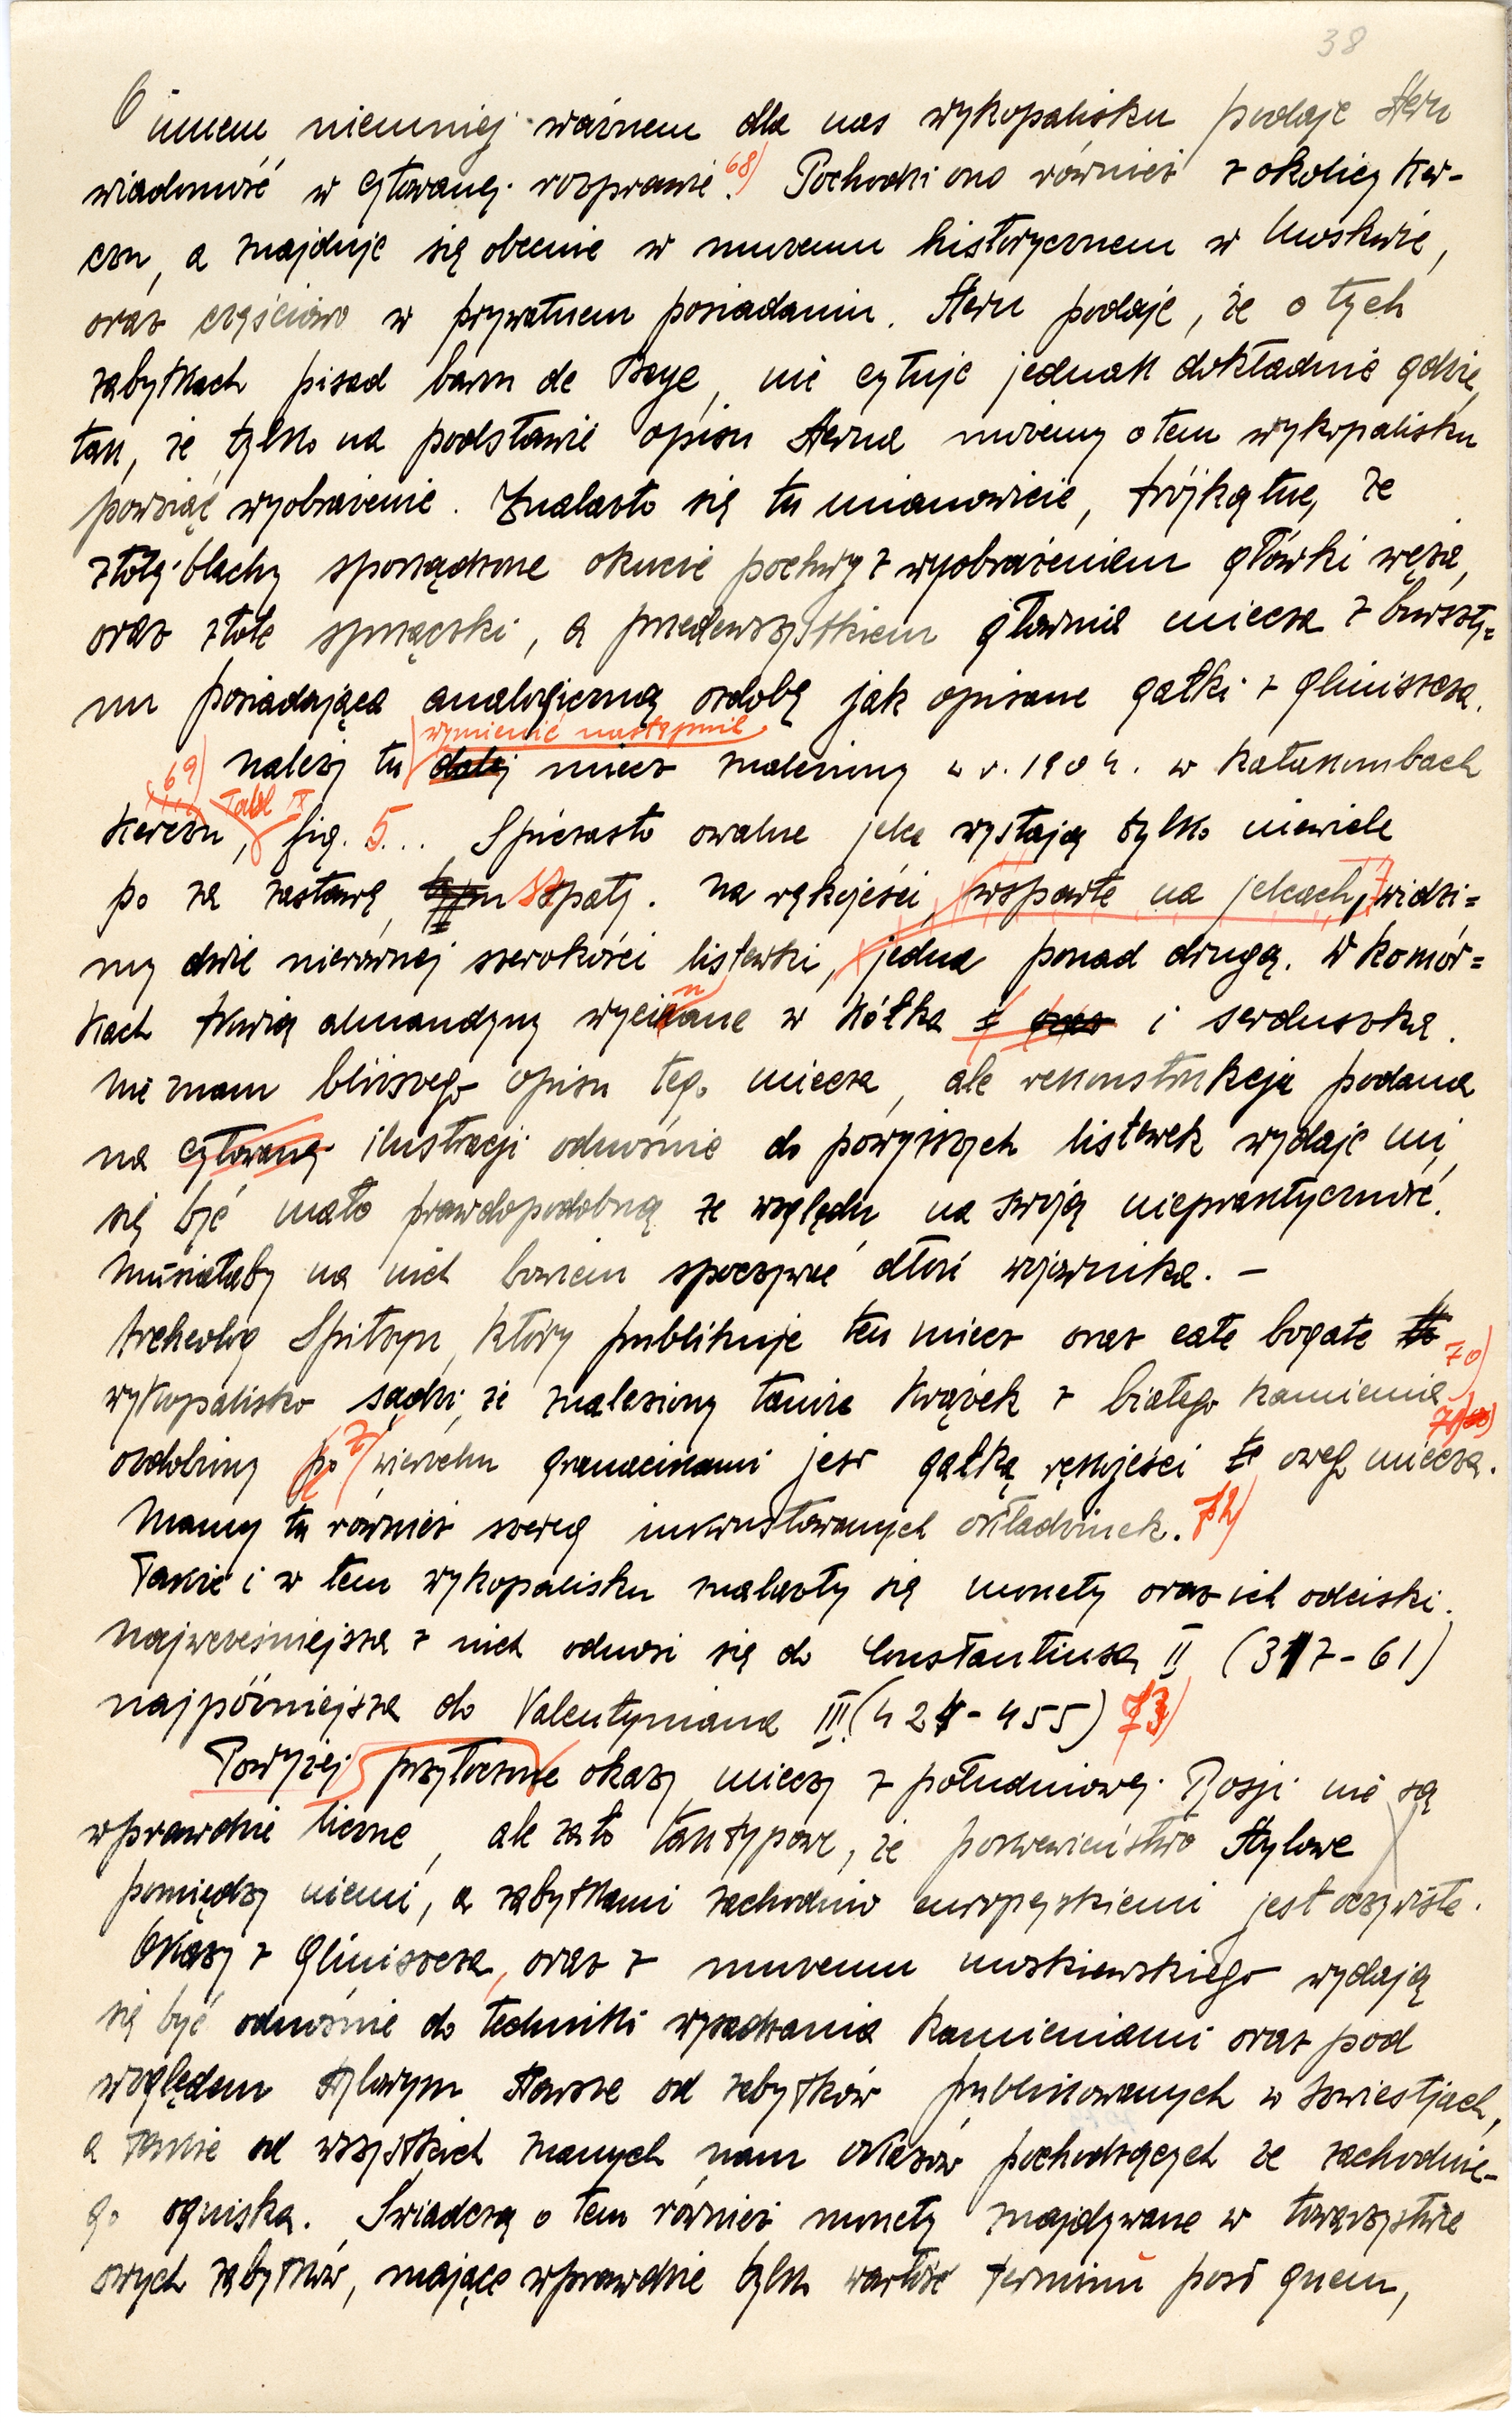 38
O innem niemniej ważnem dla nas wykopalisku podaje Stern
wiadomość w cytowanej rozprawie. 68) Pochodzi ono również z okolicy Ker-
czu, a znajduje się obecnie w muzeum historycznem w Moskwie,
oraz częściowo w prywatnem posiadaniu. Stern podaje, że o tych
zabytkach pisał baron de Baye, nie cytuje jednak dokładnie gdzie,
tak, że tylko na podstawie opisu Sterna możemy o tem wykopalisku
powziąć wyobrażenie. Znalazło się tu mianowicie, trójkątne, ze
złotej blachy sporządzone okucie pochwy z wyobrażeniem główki węża,
oraz złote sprzączki, a przedewszystkiem głownia miecza z burszty=
nu posiadająca analogiczną ozdobę jak opisane gałki z Gliniszcza.
wymienić następnie
69) Należy tu dalej miecz znaleziony w r. 1904. w Katakombach
Kerczu, Tabl IV fig. 5... Spiczasto owalne jelce wystają tylko niewiele
po za zastawę szpaty. Na rękojeści, wsparte na jelcach, widzi=
my dwie nierównej szerokości listewki, jedna ponad drugą. W komór=
kach tkwią almandyny wycinane w kółka i serduszka.
Nie znam bliższego opisu tego miecza, ale rekonstrukcja podana
na cytowanej ilustracji odnośnie do powyższych listewek wydaje mi
się być mało prawdopodobną ze względu na swoją niepraktyczność.
Musiałaby na nich bowiem spoczywać dłoń wojownika. –
Archeolog Spitzyn, który publikuje ten miecz oraz całe bogate to
wykopalisko sądzi, że znaleziony tamże krążek z białego kamienia 70)
ozdobiony z wierzchu granacikami jest gałką rękojeści owego miecza. 71)
Mamy tu również szereg inkrustowanych okładzinek. 72)
Także i w tem wykopalisku znalazły się monety oraz ich odciski.
Najwcześniejsza z nich odnosi się do Constantiusa II (317-61)
najpóźniejsza do Valentyniana III (424-455) 73)
Powyżej przytoczone okazy mieczy z południowej Rosji nie są
wprawdzie liczne, ale zato tak typowe, że pokrewieństwo stylowe
pomiędzy niemi, a zabytkami zachodnio europejskiemi jest oczywiste.
Okazy z Gliniszcza, oraz z muzeum moskiewskiego wydają
się być odnośnie do techniki wysadzania kamieniami oraz pod
względem stylowym starsze od zabytków publikowanych w Izwiestjach,
a także od wszystkich znanych nam okazów pochodzących ze zachodnie-
go ogniska. Świadczą o tem również monety znajdywane w towarzystwie
owych zabytków, mające wprawdzie tylko wartość terminu post quem,